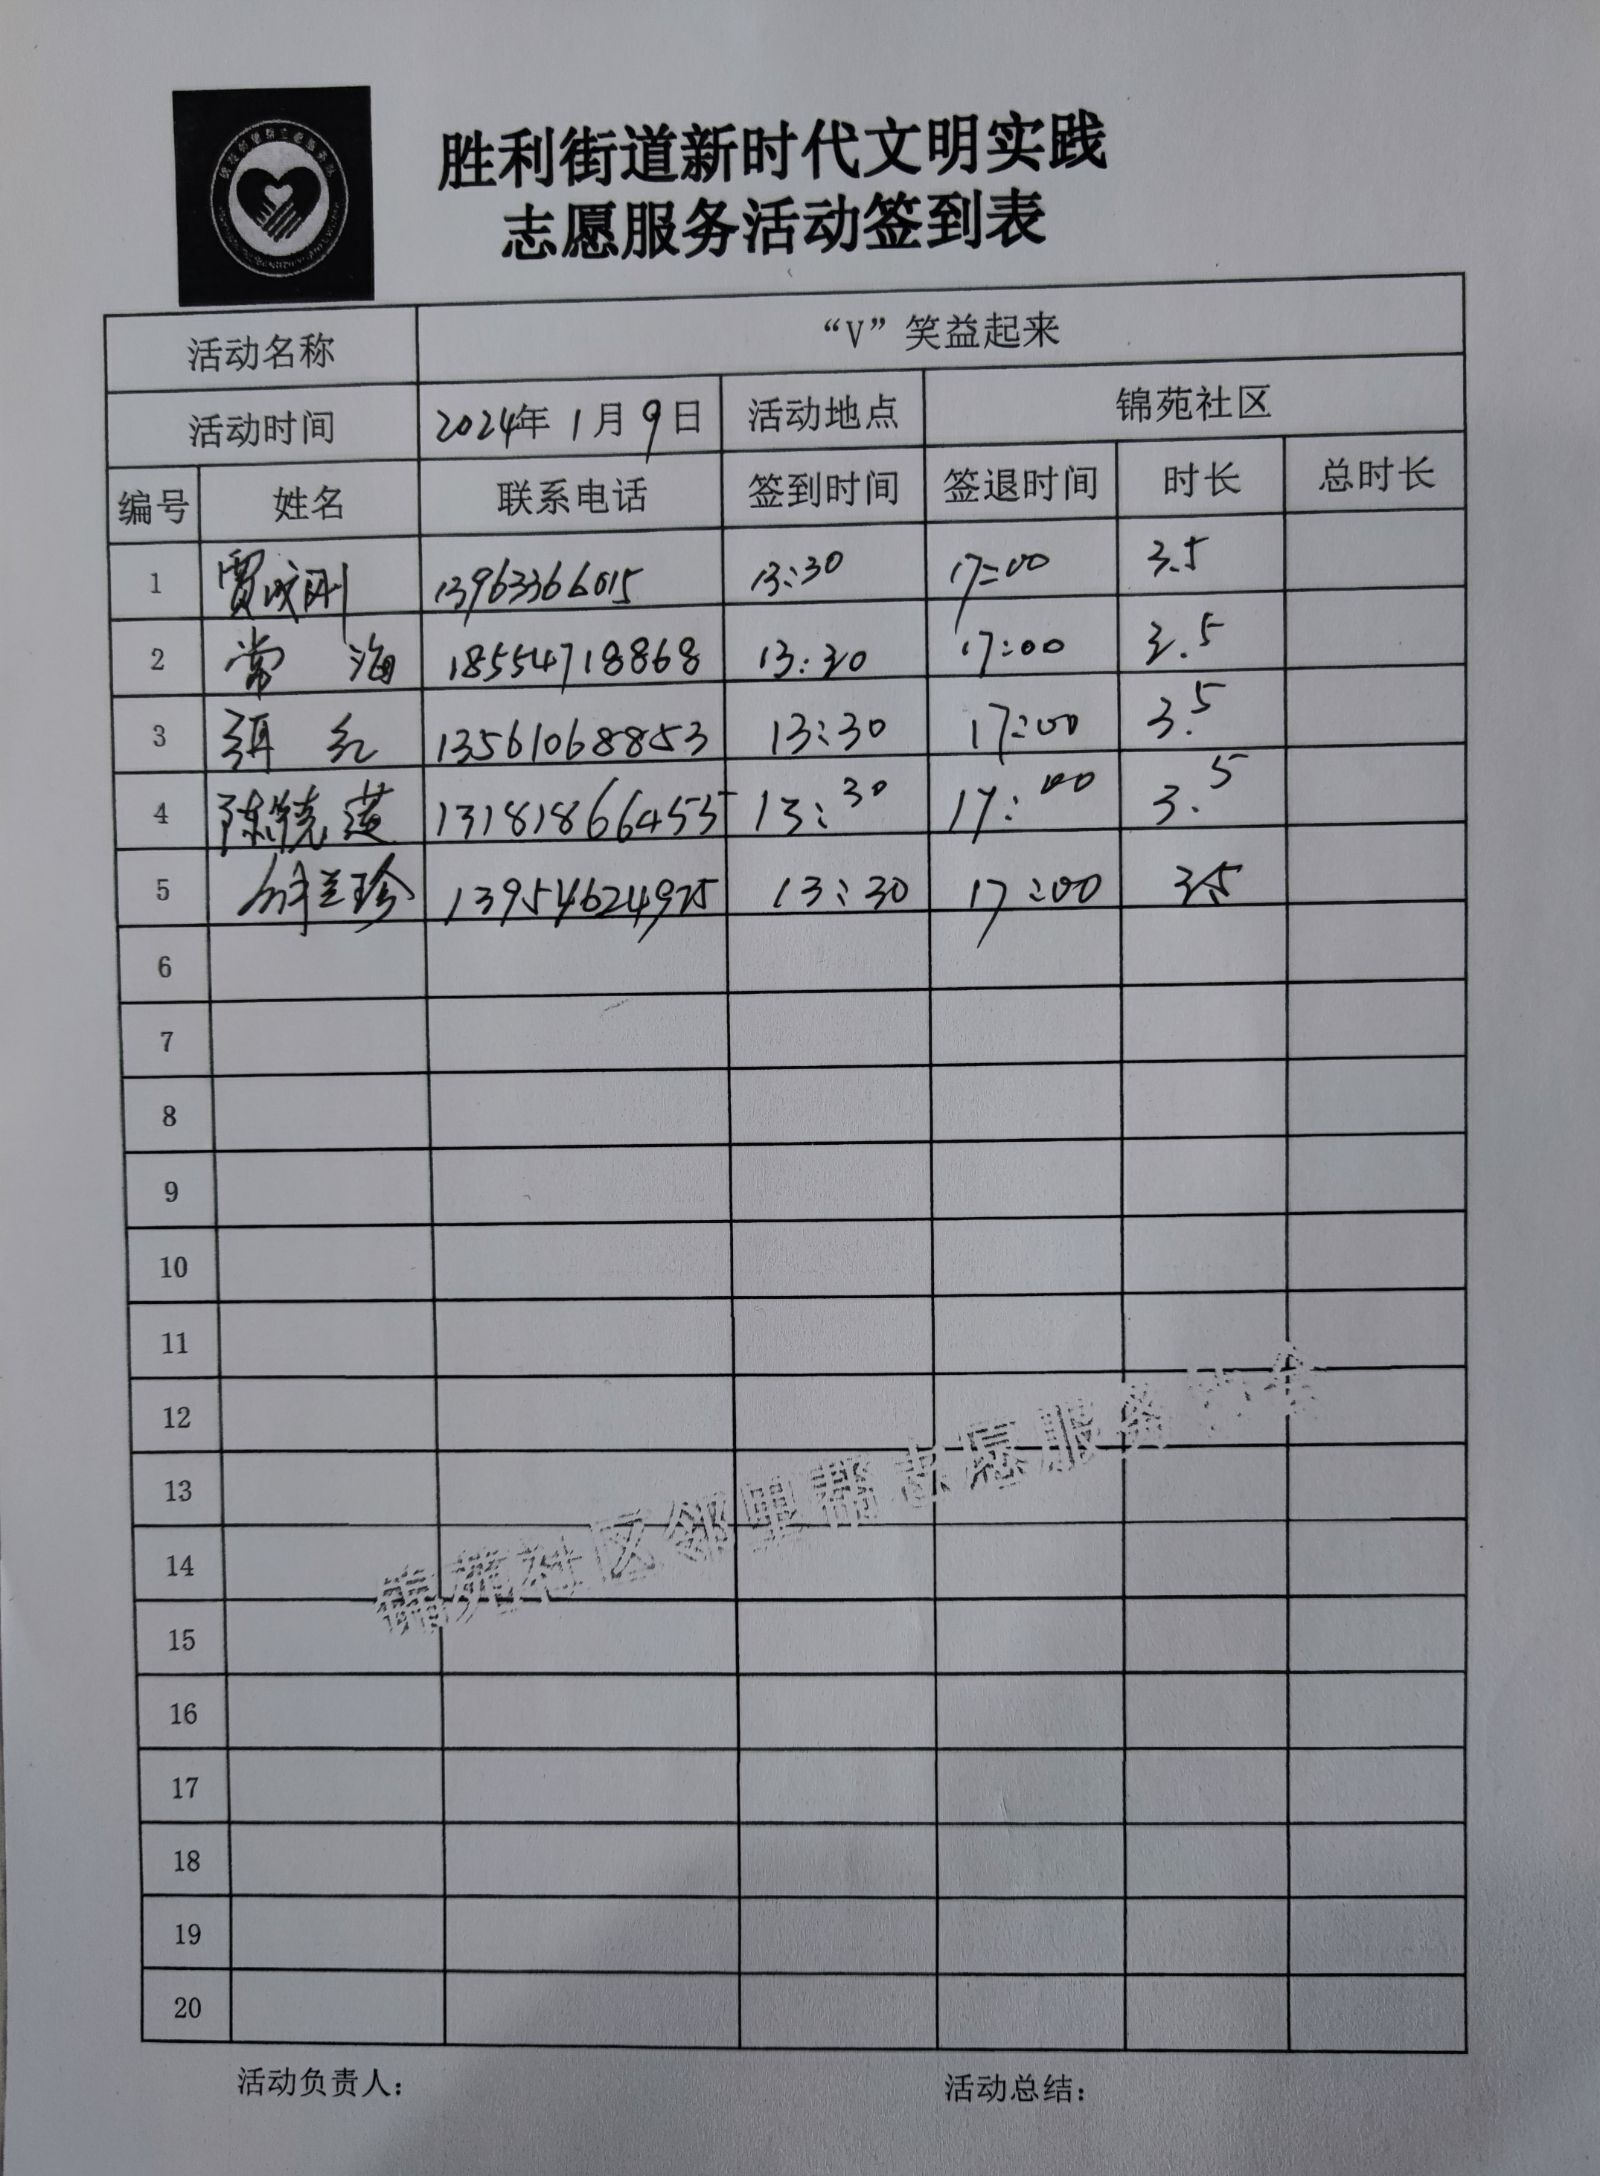 胜利街道新时代文明实践
志愿服务活动签到表
活动名称 “V”笑益起来
活动时间 2024年 1月 9日 活动地点 锦苑社区
编号 姓名 联系电话 签到时间 签退时间 时长 总时长
1 贾成刚 13963366015 13:30 17:00 3.5
2 常海 18554718868 13:30 17:00 3.5
3 红 13561068853 13:30 17:00 3.5
4 13181866453 13:30 17:00 3.5
5 兰珍 13954624975 13:30 17:00 3.5
6
7
8
9
10
11
12
13
14
15
16
17
18
19
20
锦苑社区邻里帮志愿服务协会
活动负责人: 活动总结: